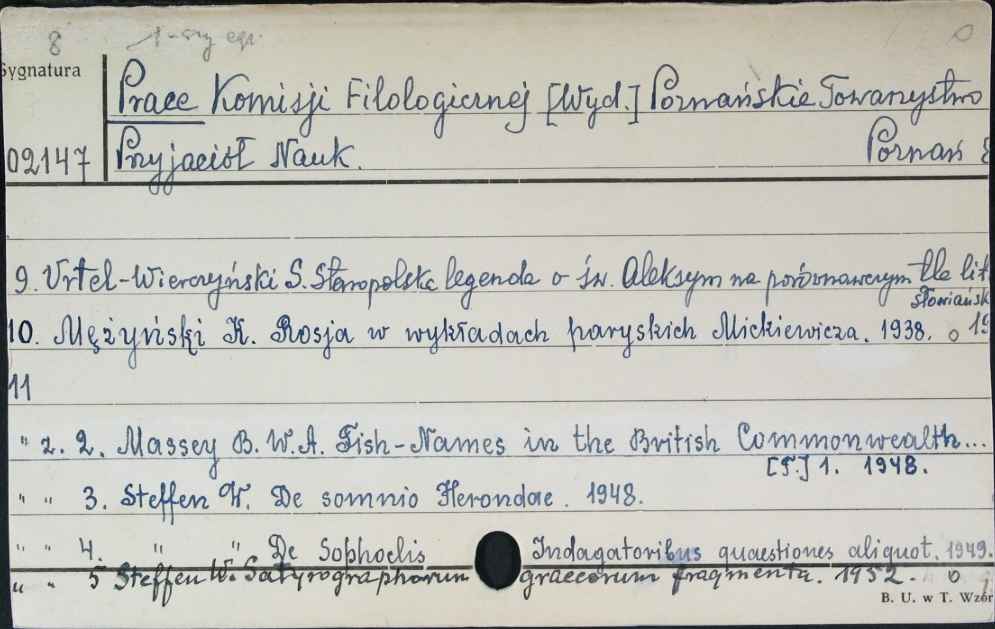 8 1-szy egz. 0
Sygnatura
Prace Komisji Filologicznej [Wyd.] Poznańskie Towarzystwo
02147 Przyjaciół Nauk. Poznań 8
9. Vrtel-Wierczyński S. Staropolska legenda o św. Aleksym na porównawczym tle lit
słowiańsk
10. Mężyński K. Rosja w wykładach paryskich Mickiewicza. 1938. 0 19
11
" z. 2. Massey B. W. A. Fish-Names in the British Commonwealth...
[T.] 1. 1948.
" " 3. Steffen W. De somnio Herondae. 1948.
" " 4. " " De Sophoclis Indagatoribus quaestiones aliquot. 1949.
" " 5 Steffen W. Satyrographorum graecorum fragmenta. 1952. 0
B. U. w T. Wzór